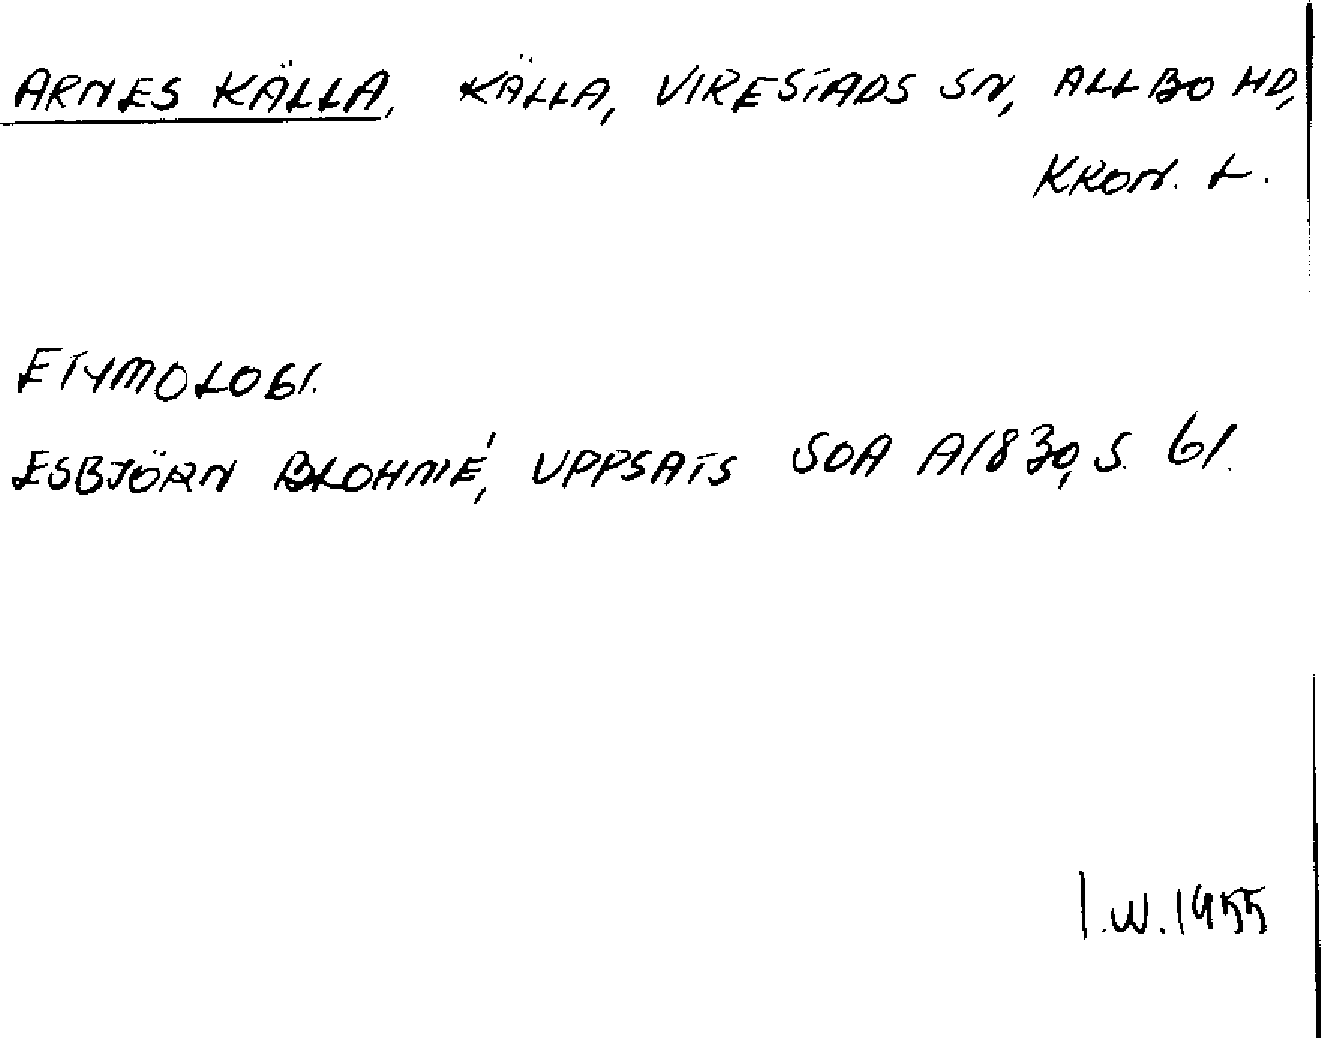 ARNES KÄLLA, KÄLLA, VIRESTADS SN, ALLBO HD,
KRON. L.
ETYMOLOGI.
ESBJÖRN BLOHMÉ, UPPSATS SOA A1830, S. 61.
I.W. 1955